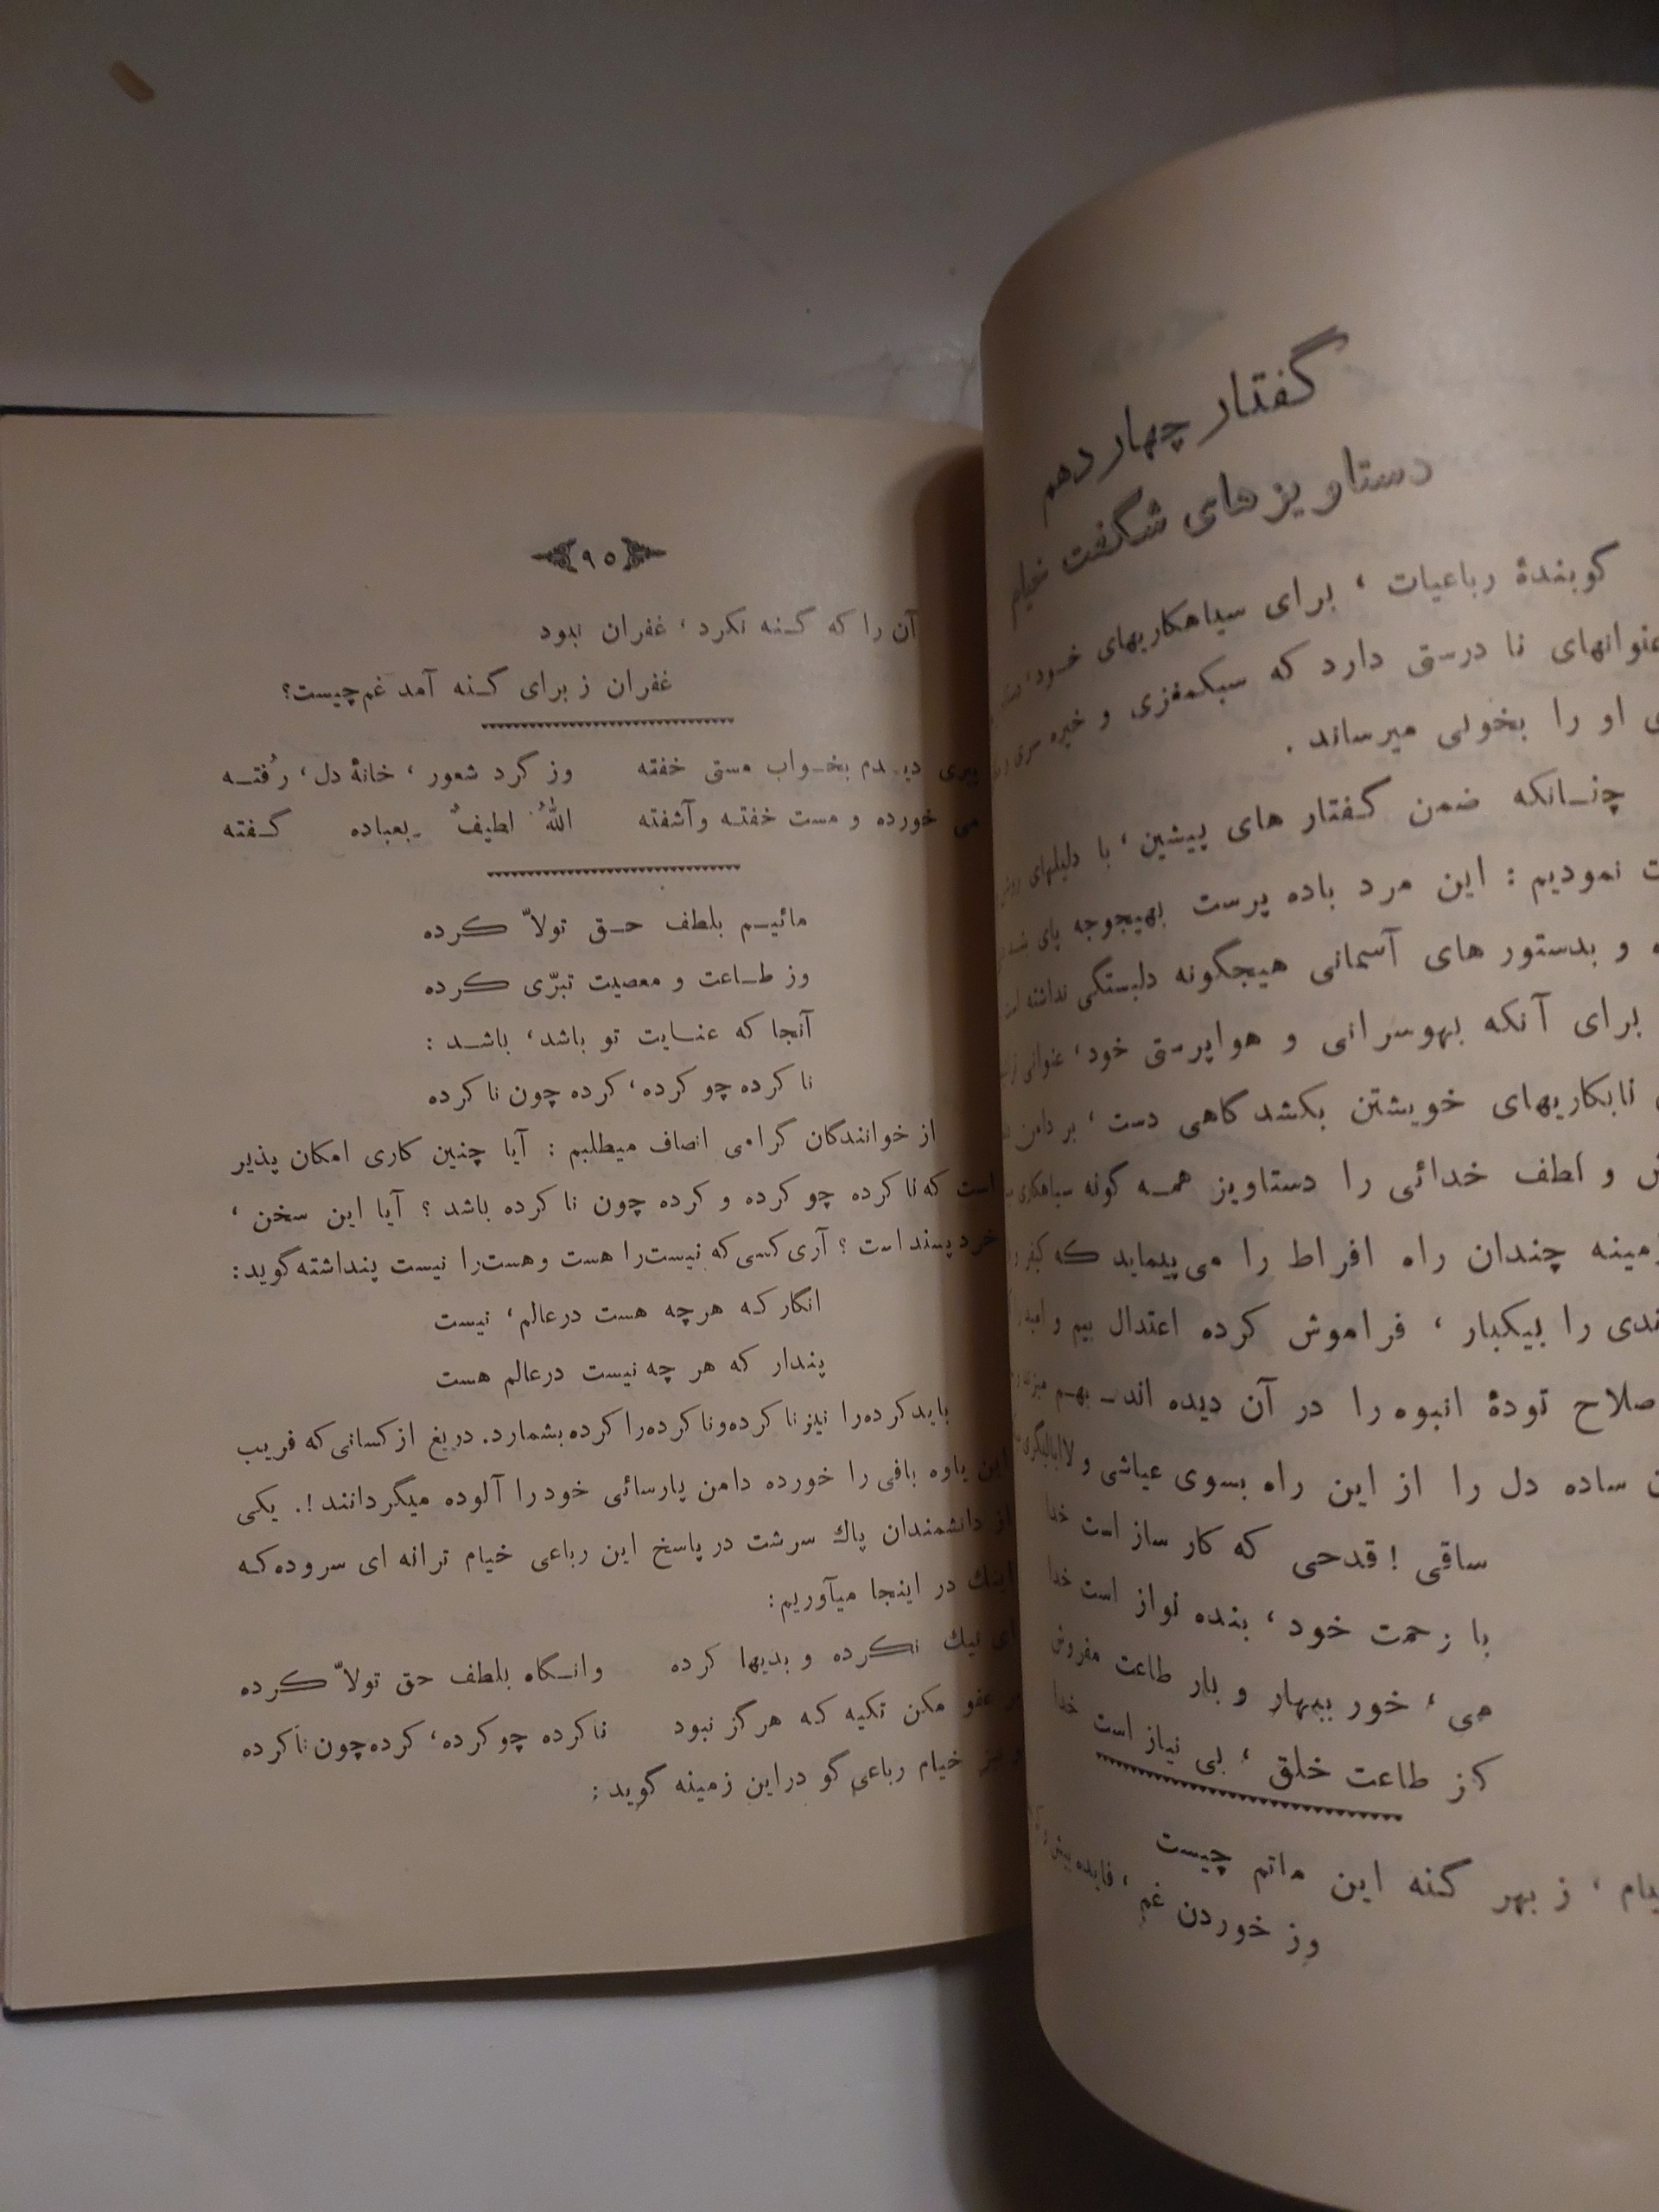 گفتار چهاردهم
دستاویزهای شگفت خیام
گویندۀ رباعیات ، برای سیاهکاریهای خود ،
عنوانهای نا درستی دارد که سبکمغزی و خیره سری
او را بخوبی میرساند .
چنـانکه ضمن گفتار های پیشین ، با دلیلهای
نمودیم : این مرد باده پرست بهیچوجه پای
و بدستور های آسمانی هیچگونه دلبستگی نداشته
برای آنکه بهوسرانی و هواپرستی خود ، عنوانی
نابکاریهای خویشتن بکشد گاهی دست ، بر دامن
و لطف خدائی را دستاویز همـه گونه سیاهکاری
زمینه چندان راه افراط را می پیماید که کیفر
را بیکبار ، فراموش کرده اعتدال بیم و امید
صلاح تودۀ انبوه را در آن دیده اند ـ بهـم
ساده دل را از این راه بسوی عیاشی و لاابالیگری
ساقی ! قدحی که کار ساز است خدا
با رحمت خود ، بنده نواز است خدا
می ، خور ببهار و بار طاعت مفروش
کز طاعت خلق ، بی نیاز است خدا
ز بهر گنه این ماتم چیست
وز خوردن غم ، فایده بیش
﴿۹۵﴾
آن را که گـنه نکرد ، غفران نبود
غفران ز برای گـنه آمد غم چیست؟
پیری دیـدم بخـواب مستی خفته وز گرد شعور ، خانۀ دل ، رُفتـه
می خورده و مست خفتـه وآشفته اللهُ لطیفٌ بعباده گـفته
مائیـم بلطف حـق تولاّ کرده
وز طـاعت و معصیت تبرّی کرده
آنجا که عنـایت تو باشد ، باشـد :
نا کرده چو کرده ، کرده چون نا کرده
از خوانندگان گرامی انصاف میطلبم : آیا چنین کاری امکان پذیر
است که نا کرده چو کرده و کرده چون نا کرده باشد ؟ آیا این سخن ،
خرد پسند است ؟ آری کسی که نیست را هست و هست را نیست پنداشته گوید :
انگار کـه هرچه هست درعالم ، نیست
پندار که هر چه نیست درعالم هست
باید کرده را نیز نا کرده و نا کرده را کرده بشمارد . دریغ از کسانی که فریب
این یاوه بافی را خورده دامن پارسائی خود را آلوده میگردانند !. یکی
از دانشمندان پاك سرشت در پاسخ این رباعی خیام ترانه ای سروده کـه
اینك در اینجا میآوریم :
ای نیك نکرده و بدیها کرده وانـگاه بلطف حق تولاّ کرده
بر عفو مکن تکیه کـه هرگز نبود نا کرده چو کرده ، کرده چون نا کرده
و نیز خیام رباعی گو دراین زمینه گوید :